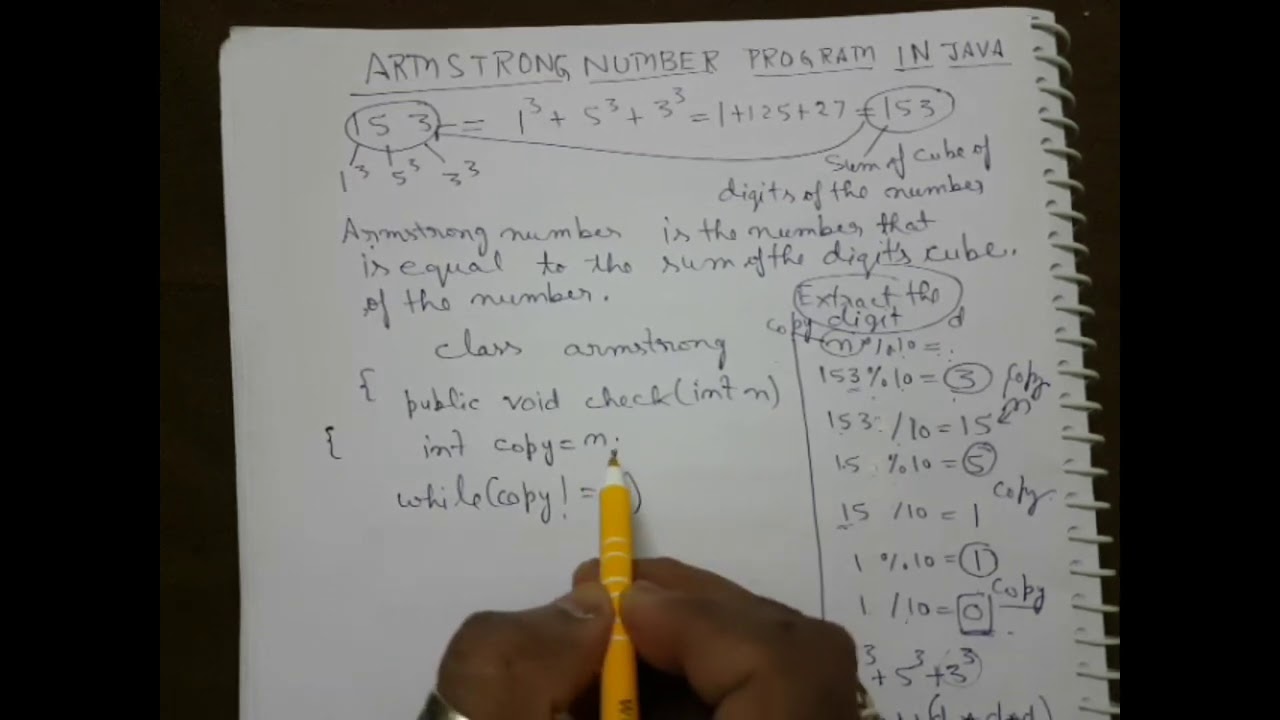 ARMSTRONG NUMBER PROGRAM IN JAVA
153 = 1³ + 5³ + 3³ = 1+125+27 = 153
1³ 5³ 3³
Sum of cube of
digits of the number
Armstrong number is the number that
is equal to the sum of the digits cube.
of the number.
class armstrong
{ public void check(int n)
{ int copy = n;
while(copy! =
)
Extract the
copy digit d
n % 10 = .
153 % 10 = 3 copy
153 / 10 = 15 n
15 % 10 = 5
copy
15 / 10 = 1
1 % 10 = 1
copy
1 / 10 = 0
³ + 5³ + 3³
(d * d * d)
W